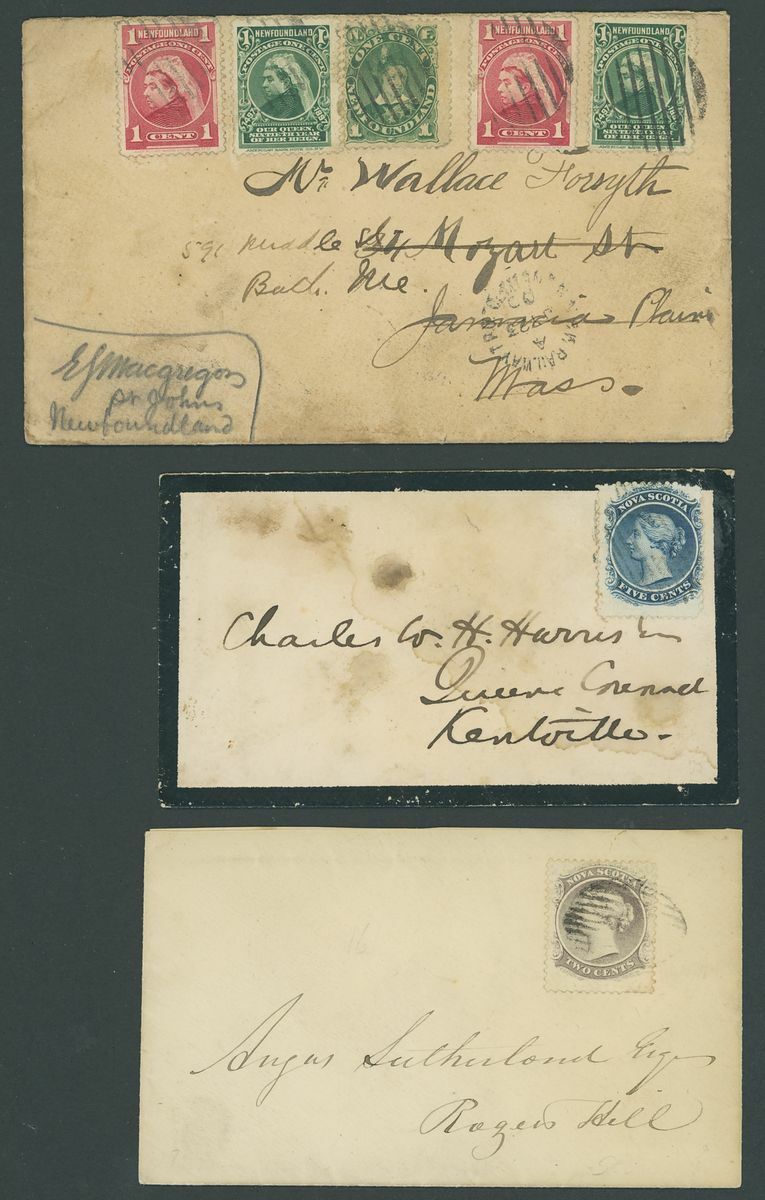 1 NEWFOUNDLAND 1
POSTAGE ONE CENT
1 CENT 1
1 NEWFOUNDLAND 1
POSTAGE ONE CENT
1497 1897
OUR QUEEN,
SIXTIETH YEAR
OF HER REIGN.
ONE CENT
NEWFOUNDLAND
1 1
1 NEWFOUNDLAND 1
POSTAGE ONE CENT
1 CENT 1
1 NEWFOUNDLAND 1
POSTAGE ONE CENT
1497
OUR QUEEN,
SIXTIETH YEAR
OF HER REIGN.
Mr. Wallace Forsyth
591 Middle St Mozart St.
Bath. Me.
Jamacia Plain
Mass.
RAILWAY
EJ Macgregor
St Johns
Newfoundland
NOVA SCOTIA
FIVE CENTS
Charles W. H. Harris
Kentville.
NOVA SCOTIA
TWO CENTS
16
Angus Sutherland Esq
Rogers Hill